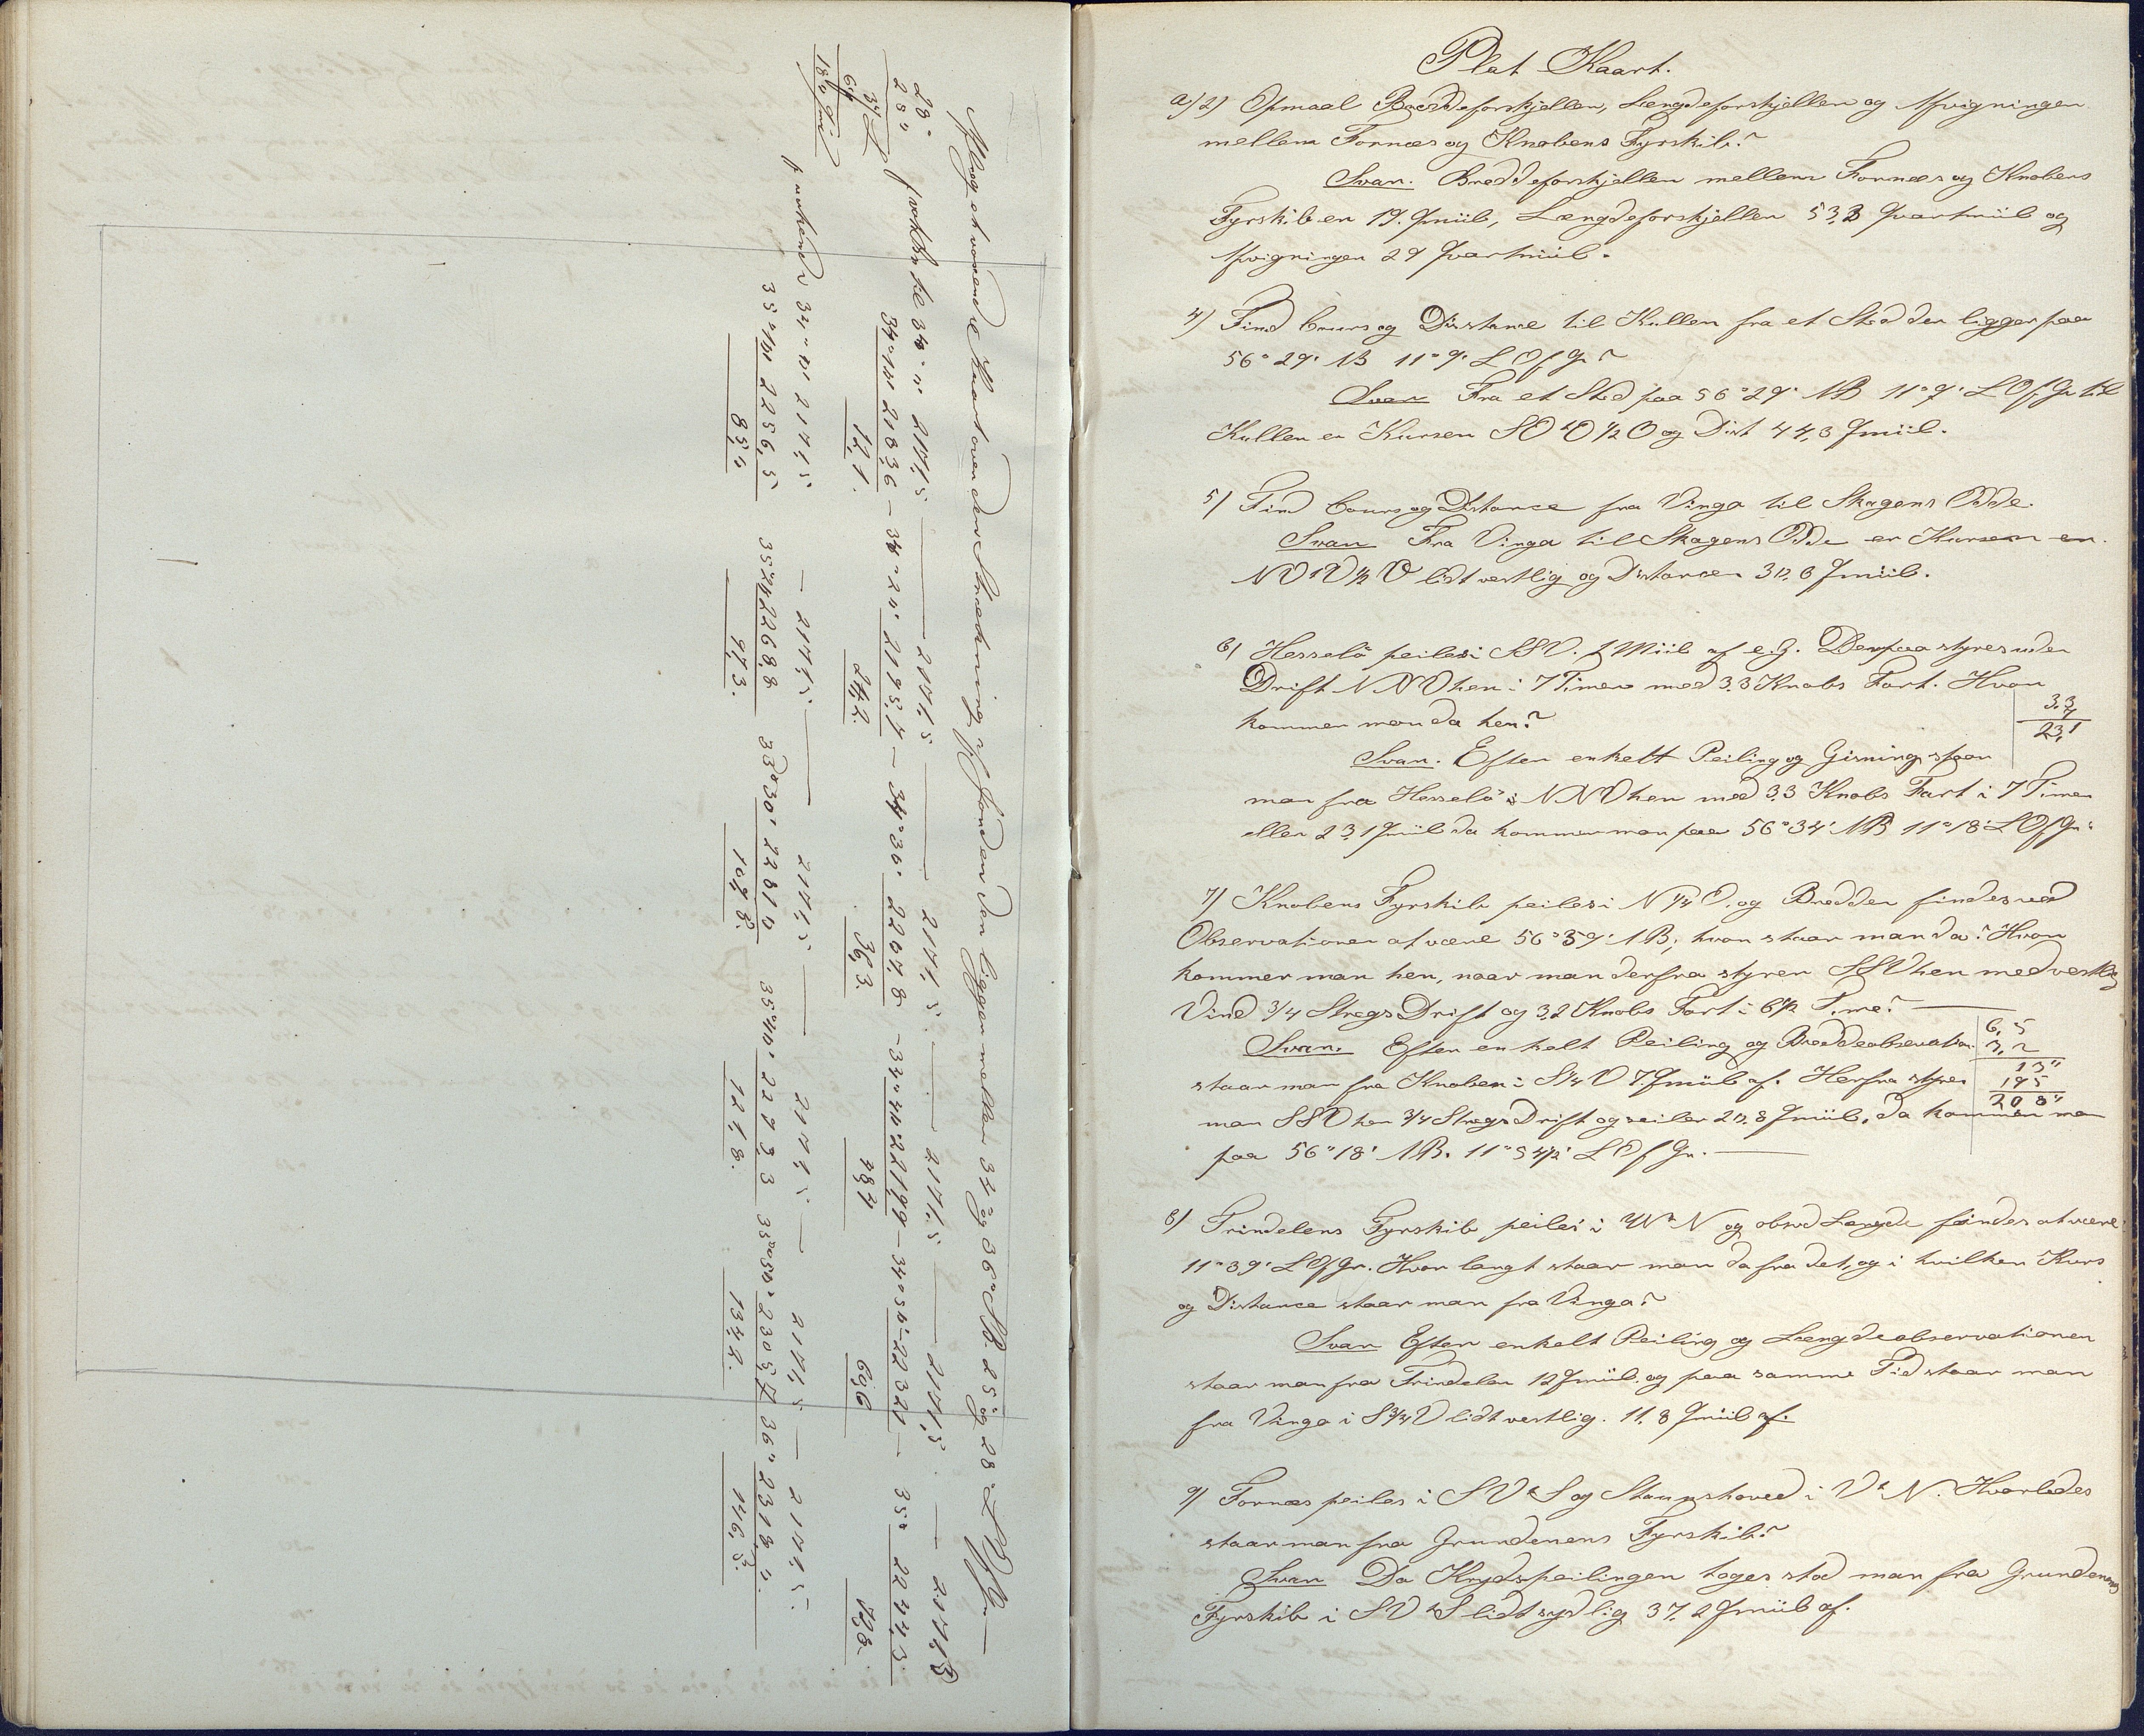 Afslog et voxende Kaart over den Strækning af Jorden der ligger mellem 34° og 36° SB. 25° og 28° L O f Gr.
28°
25"
3" L
60
180 Qmiil
f voxBr til 34° 0' 2171,5 — 2171,5 — 2171,5 — 2171,5 — 2171,5 — 2171,5
34° 10' 2183,6 — 34° 20' 2195,7 — 34° 30' 2207,8 — 34° 40' 2219,9 — 34° 50' 2232,1 — 35° 2244,3
12,1. 24,2. 36,3. 48,4 60,6 72,8.
f voxende 34° 0' 2171,5 — 2171,5 — 2171,5 — 2171,5 — 2171,5 — 2171,5.
35° 10' 2256,5 35° 20' 2268,8 35° 30' 2281,0 35° 40' 2293,3 35° 50' 2305,7 36° 2318,0.
85,0 97,3. 109,5. 121,8. 134,2. 146,5.
Plat Kaart.
a) 2) Opmaal Breddeforskjellen, Længdeforskjellen og Afvigningen
mellem Fornæs og Knobens Fyrskib?
Svar. Breddeforskjellen mellem Fornæs og Knobens
Fyrskib er 19. Qmiil, Længdeforskjellen 53,3 Qvartmiil og
Afvigningen 29 Qvartmiil.
4) Find Cours og Distance til Kullen fra et Sted der ligger paa
56° 29' NB 11° 9' L O f Gr?
Svar Fra et Sted paa 56° 29' NB 11° 9' L O f Gr til
Kullen er Kursen SO t O 1/2 O og Dist 44,3 Qmiil.
5) Find Cours og Distance fra Vinga til Skagens Odde.
Svar Fra Vinga til Skagens Odde er Kursen er
NV t V 1/2 V lidt vestlig og Distancen 30,6 Qmiil.
6) Hesselø peiles i SSV. 1 Miil af e. G. Derpaa styres uden
Drift NNV hen i 7 Timer med 3,3 Knobs Fart. Hvor
kommer man da hen?
3,3
7
23,1
Svar. Efter enkelt Peiling og Gisning staar
man fra Hesselø i NNO hen med 3,3 Knobs Fart i 7 Timer
eller 23,1 Qmiil da kommer man paa 56° 34' NB 11° 18' L O f Gr.
7) Knobens Fyrskib peiles i N 1/4 O, og Bredden findes ved
Observationer at være 56° 39' NB, hvor staar man da? Hvor
kommer man hen, naar man derfra styrer SSV hen med vestlig
Vind 3/4 Stregs Drift og 3,2 Knobs Fart i 6 1/2 Time?
Svar. Efter enkelt Peiling og Breddeobservation
6,5
3,2
130
195
20,80
staar man fra Knoben i S 1/4 V 7. Qmiil af. Herfra styres
man SSV hen 3/4 Stregs Drift og seiler 20,8 Qmiil, da kommer man
paa 56° 18' NB. 11° 34 1/2' L O f Gr.
8) Trindelens Fyrskib peiles i V t N og obsvd Længde findes at være
11° 39' L O f Gr. Hvor langt staar man da fra det, og i hvilken Kurs
og Distance staar man fra Vinga?
Svar Efter enkelt Peiling og Længdeobservationen
staar man fra Trindelen 12 Qmiil. og paa samme Tid staar man
fra Vinga i S 3/4 V lidt vestlig. 11,8 Qmiil af.
9) Fornæs peiles i SV t S og Stavnshoved i V t N. Hvorledes
staar man fra Grundenens Fyrskib?
Svar Da Krydspeilingen toges stod man fra Grundenens
Fyrskib i SV t S lidt sydlig 37,2 Qmiil af.